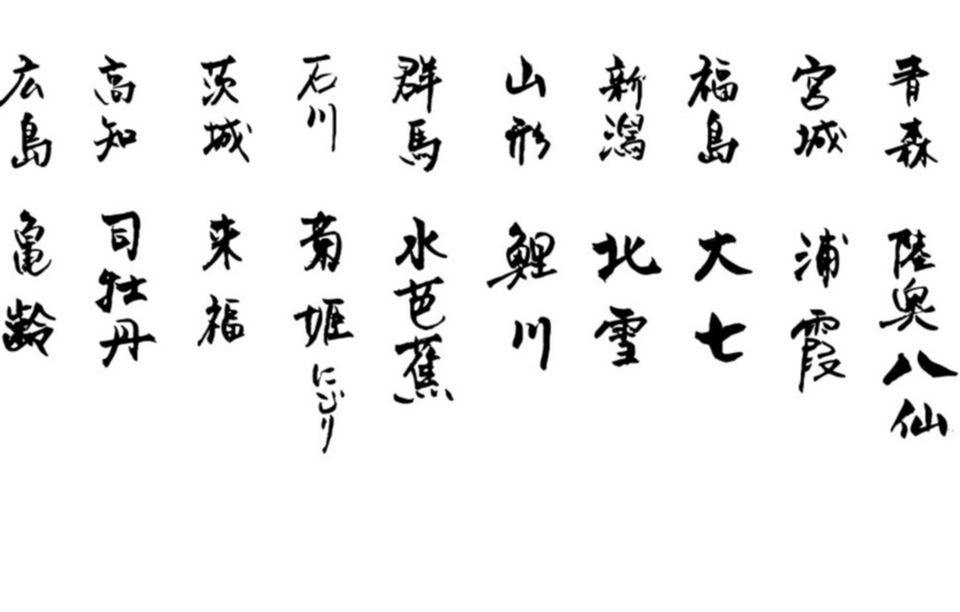 青森 陸奥八仙
宮城 浦霞
福島 大七
新潟 北雪
山形 鯉川
群馬 水芭蕉
石川 菊姫にごり
茨城 来福
高知 司牡丹
広島 亀齢